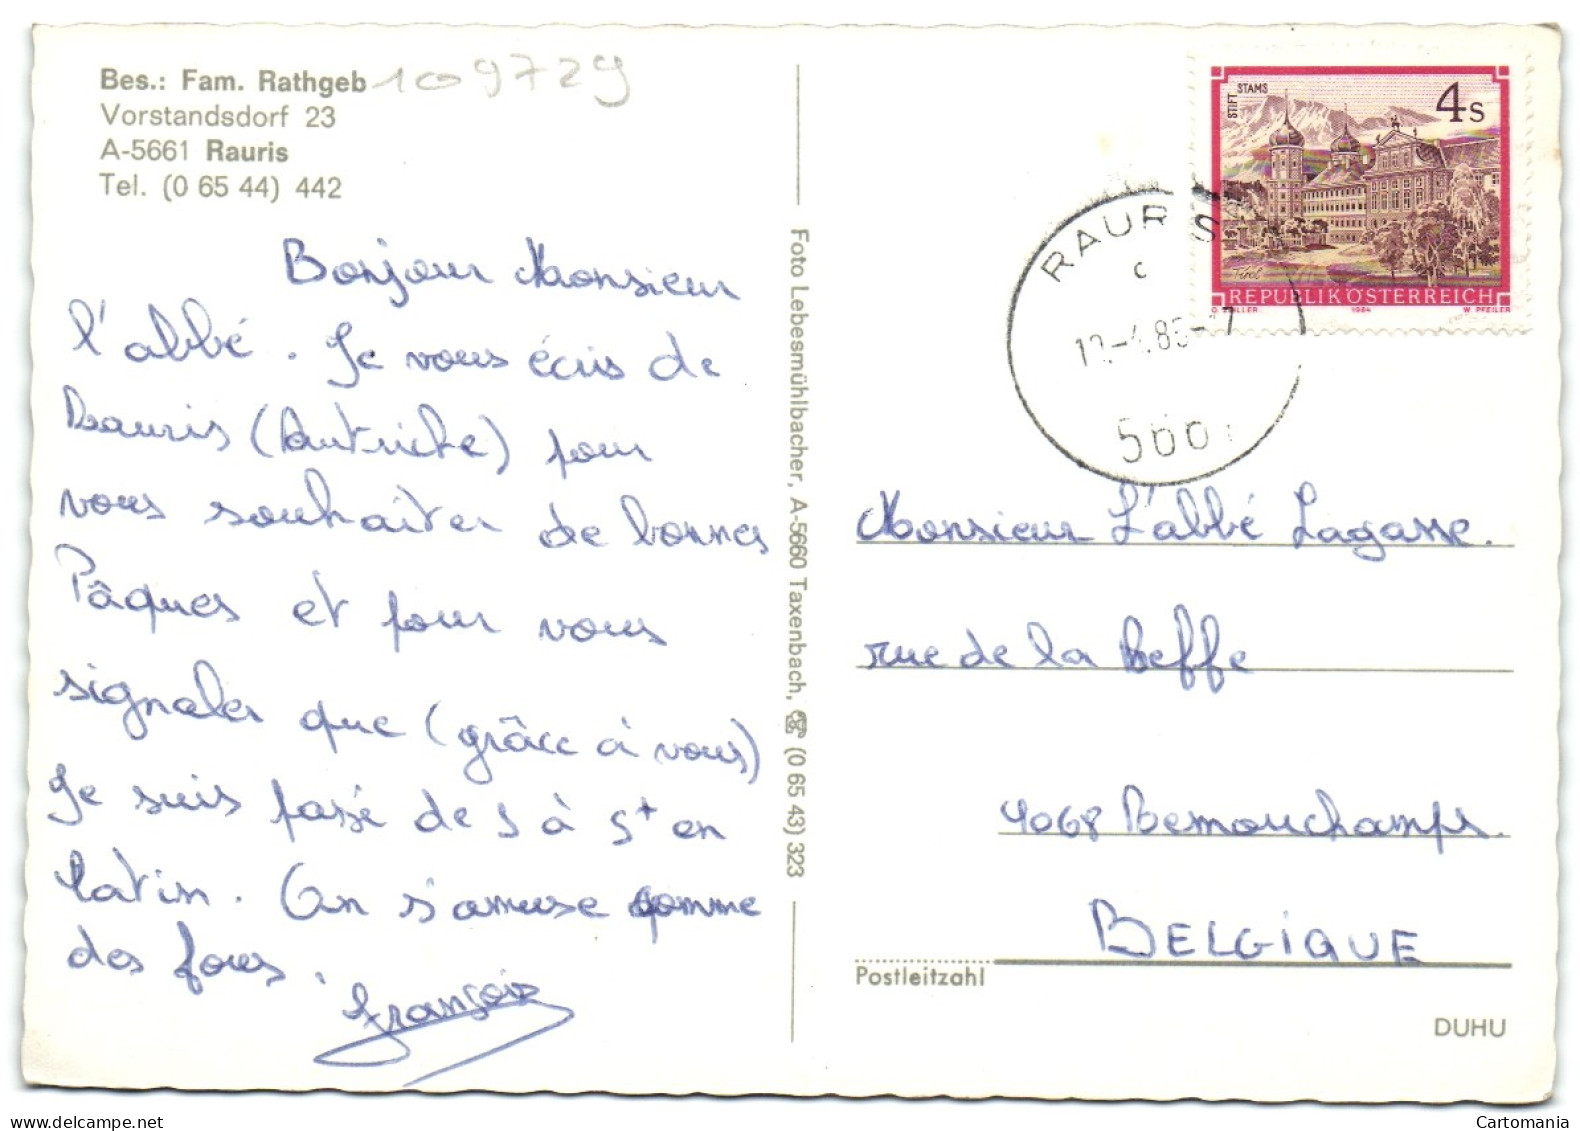 Bes.: Fam. Rathgeb 109729
Vorstandsdorf 23
A-5661 Rauris
Tel. (0 65 44) 442
Bonjour Monsieur
l'abbé. Je vous écris de
Rauris (Autriche) pour
vous souhaiter de bonnes
Pâques et pour vous
signaler que (grâce à vous)
je suis passé de 5 à 5+ en
latin. On s'amuse comme
des fous.
François
Foto Lebesmühlbacher, A-5660 Taxenbach, ☏ (0 65 43) 323
STIFT STAMS
4 S
Tirol
REPUBLIK ÖSTERREICH
1984 W. PFEILER
RAURIS
c
Monsieur L'abbé Lagasse.
rue de la Reffe
4068 Remouchamps.
BELGIQUE
Postleitzahl
DUHU
delcampe.net
Cartomania